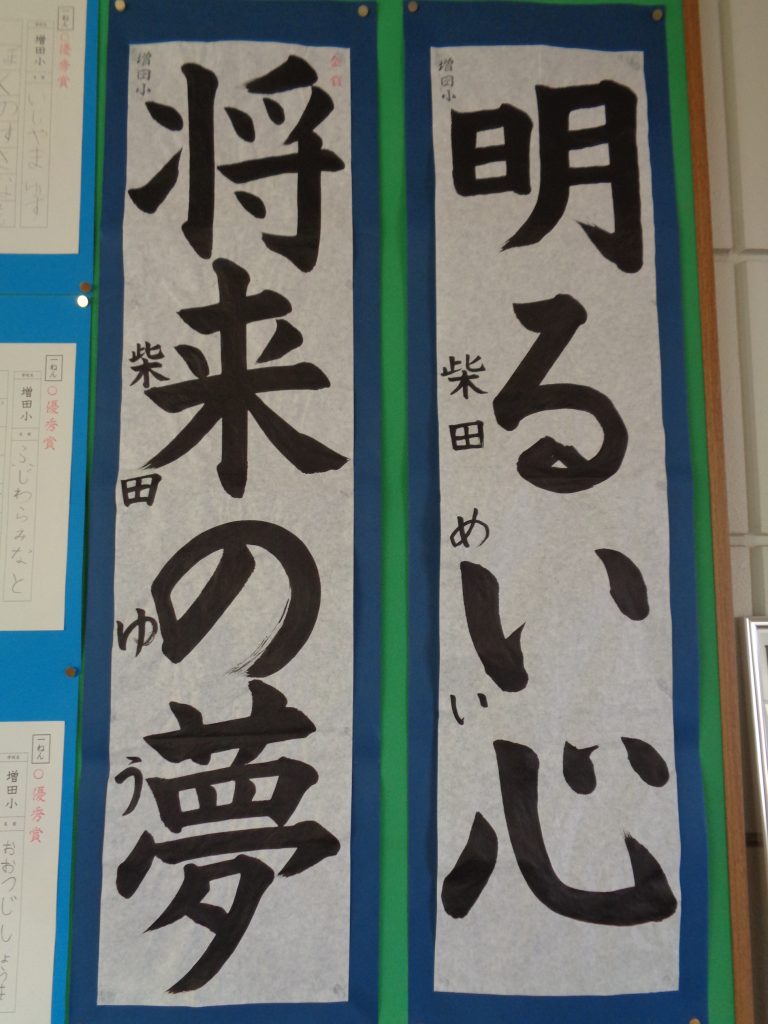 明るい心
増田小
柴田めいい
将来の夢
金賞
増田小
柴田ゆう
一ねん
○優秀賞
増田小
いしやま
一ねん
○優秀賞
増田小
ふじわらみなと
一ねん
○優秀賞
増田小
おおつじし